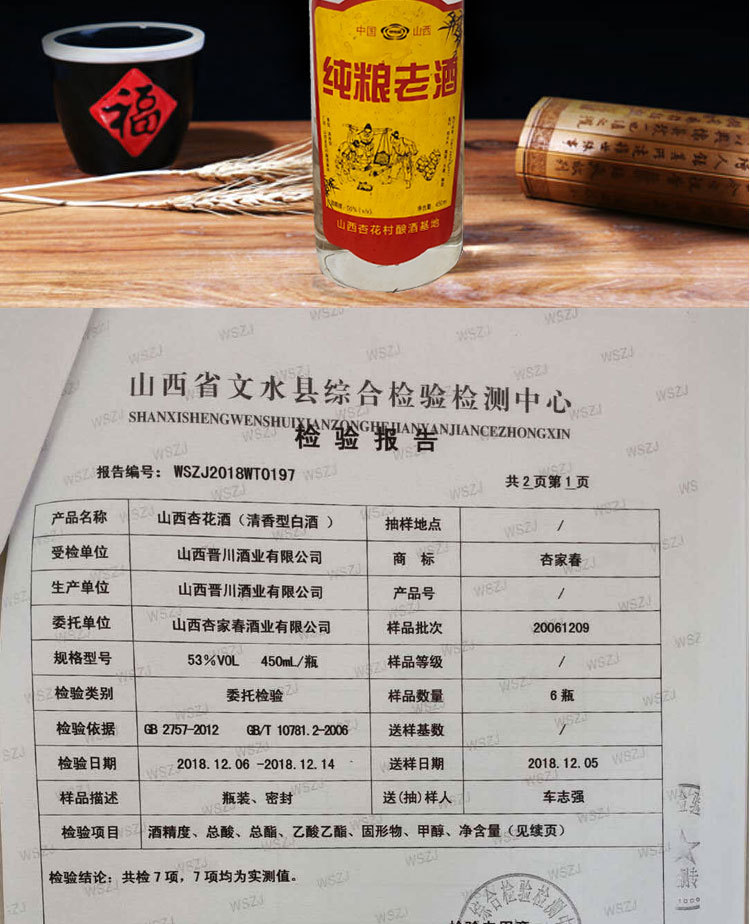 中国 山西
纯粮老酒
450ml
山西杏花村酿酒基地
福
山西省文水县综合检验检测中心
SHANXISHENGWENSHUIXIANZONGHEJIANYANJIANCEZHONGXIN
检验报告
报告编号： WSZJ2018WT0197
共 2 页第 1 页
产品名称 山西杏花酒（清香型白酒 ） 抽样地点 /
受检单位 山西晋川酒业有限公司 商 标 杏家春
生产单位 山西晋川酒业有限公司 产品号 /
委托单位 山西杏家春酒业有限公司 样品批次 20061209
规格型号 53%VOL 450mL/瓶 样品等级 /
检验类别 委托检验 样品数量 6 瓶
检验依据 GB 2757-2012 GB/T 10781.2-2006 送样基数 /
检验日期 2018.12.06 -2018.12.14 送样日期 2018.12.05
样品描述 瓶装、密封 送(抽)样人 车志强
检验项目 酒精度、总酸、总酯、乙酸乙酯、固形物、甲醇、净含量（见续页）
检验结论：共检 7 项，7 项均为实测值。
综合检验检测
WSZJ